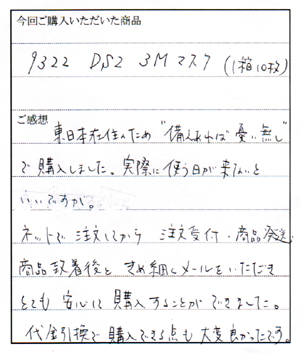 今回ご購入いただいた商品
9322 DS2 3Mマスク (1箱10枚)
ご感想
東日本在住のため“備えあれば憂い無し”
で購入しました。実際に使う日が来ないと
いいですが。
ネットで注文してから 注文受付・商品発送・
商品到着後と きめ細くメールをいただき
とても 安心して 購入することが できました。
代金引換で 購入できる点も 大変良かったです。